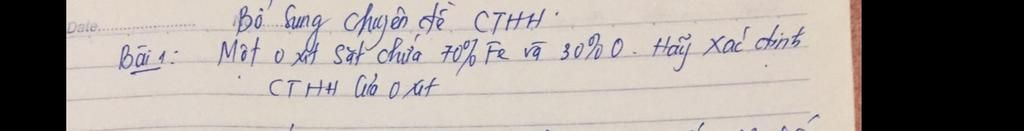 Date
Bổ sung chuyên đề CTHH.
Bài 1: Một oxit sắt chứa 70% Fe và 30% O. Hãy xác định
CTHH của oxit